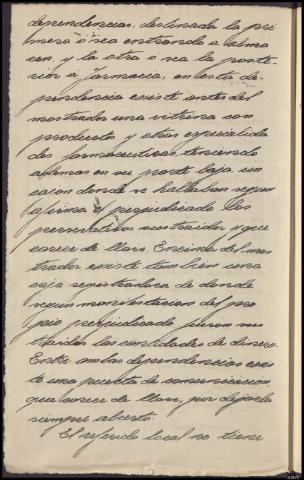 dependencias, destinada la pri
mera ó sea entrando a alma
cen, y la otra ó sea la poste
rior á farmacia, en esta de
pendencia existe antes del
mostrador una vitrina con
productos y otras especialida
des farmaceuticas, teniendo
ademas en su parte baja un
cajon donde se hallaban segun
afirma el perjudicado los
preservativos sustraidos y que
carece de llave. Encima del mos
trador existe tambien una
caja registradora de donde
segun manifestacion del pro
pio perjudicado fueron sus
traidas las cantidades de dinero.
Entre ambas dependencias exis
te una puerta de comunicacion,
que carece de llave, por dejarla
siempre abierta
El referido local no tiene